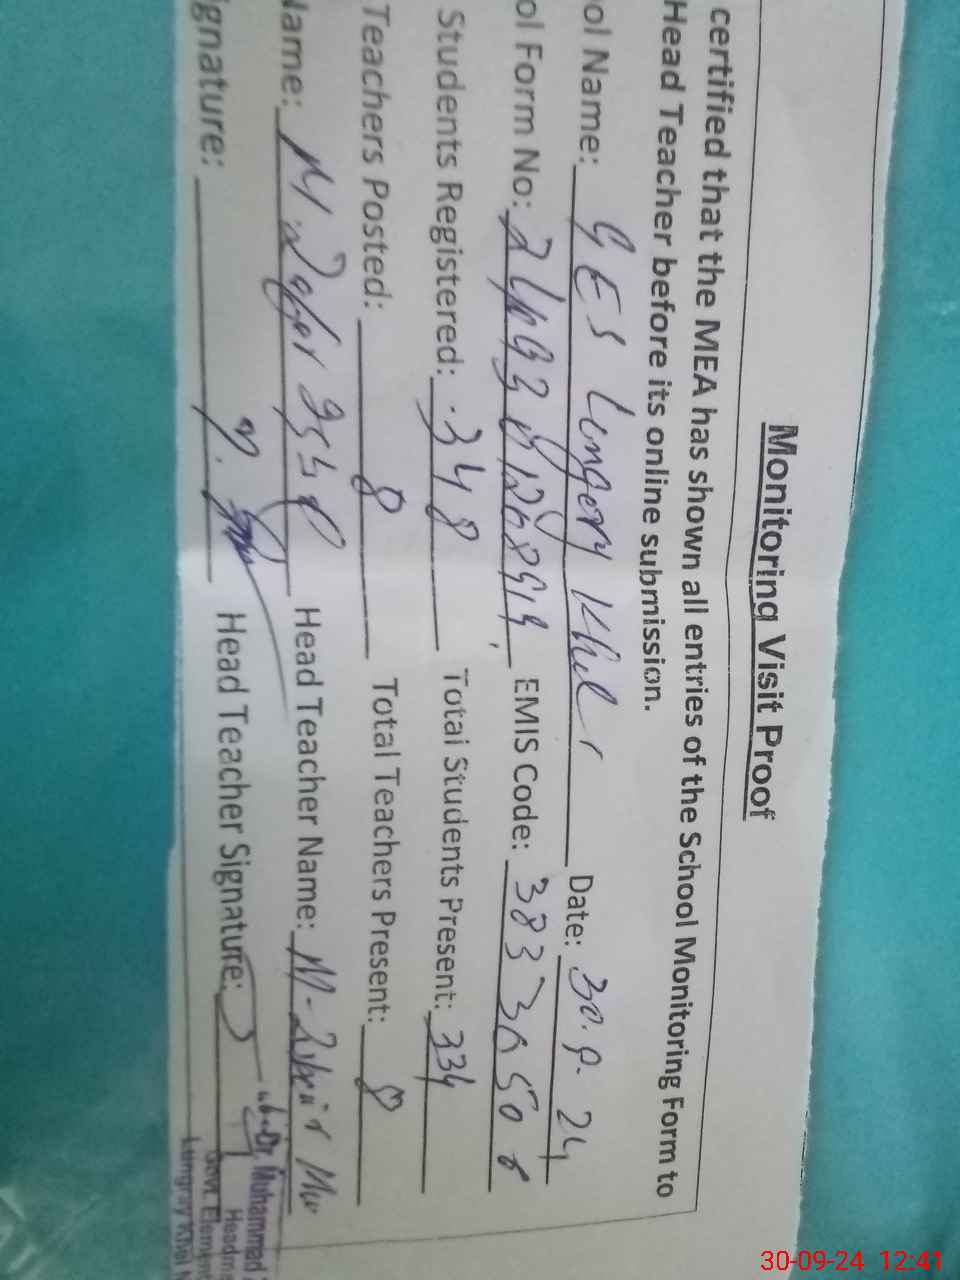 Monitoring Visit Proof
certified that the MEA has shown all entries of the School Monitoring Form to
Head Teacher before its online submission.
ool Name: GES Lengery Khel Date: 30.9.24
ol Form No: EMIS Code:
Students Registered: 348 Total Students Present: 334
Teachers Posted: 8 Total Teachers Present: 8
Name: M. Zafar Iqbal Head Teacher Name: M-Zubair
ignature: Head Teacher Signature:
Dr. Muhammad
Headm
Govt. Element
Lungray Khel
30-09-24 12:41